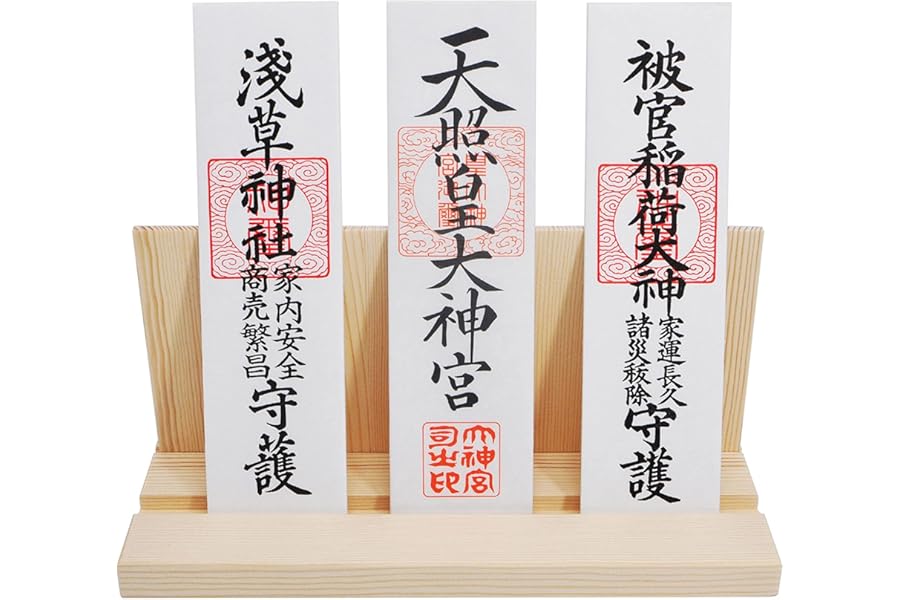 被官稲荷大神
家運長久
諸災秡除
守護
天照皇大神宮
大神宮
司之印
淺草神社
家内安全
商売繁昌
守護